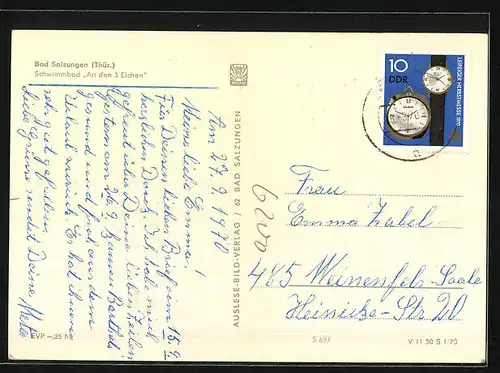 Bad Salzungen (Thür.)
Schwimmbad „An den 3 Eichen"
Am 27.9.1970
Meine liebe Emma!
Für Deinen lieben Brief vom 15.9.
herzlichen Dank. Ich habe mich
gefreut über Deine lieben Zeilen.
Gestern am 26.9. kamen Barthels
gesund und froh aus dem
Urlaub zurück. Es hat ihnen
sehr gut gefallen.
Liebe Grüße sendet Deine Meta
EVP –,25 M
AUSLESE-BILD-VERLAG / 62 BAD SALZUNGEN
6200
10
DDR
LEIPZIGER HERBSTMESSE 1970
Frau
Emma Zabel
485 Weissenfels-Saale
Heinicke-Str. 20
S 697
V 11 50 S 1/70